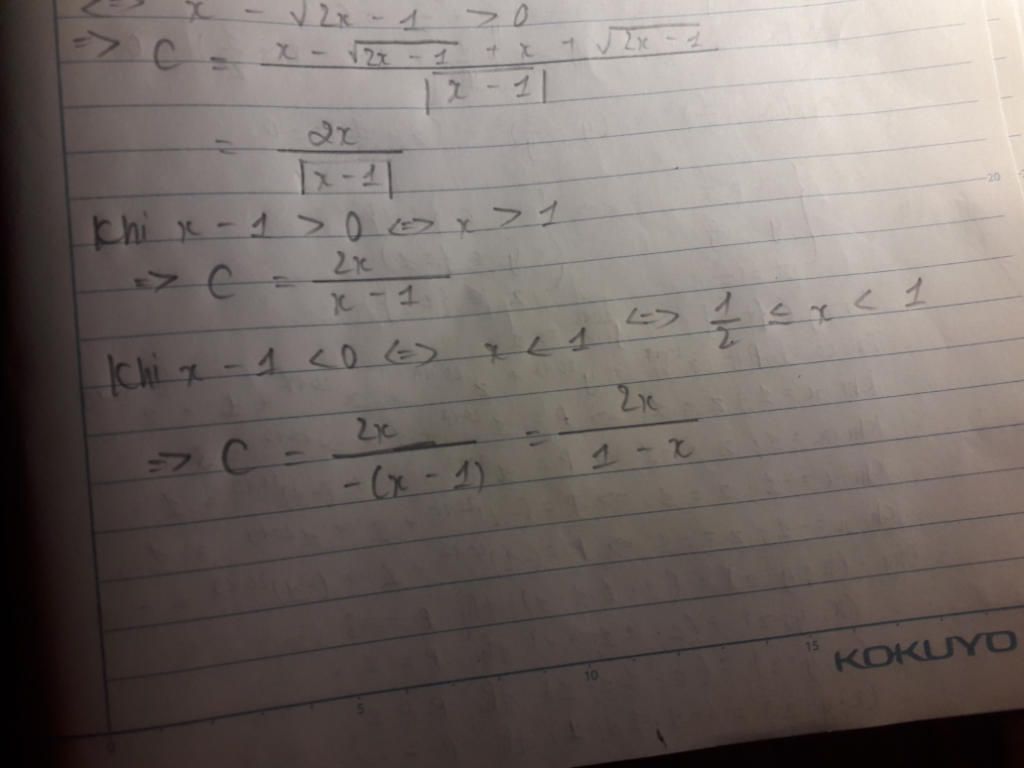 <=> x - √2x - 1 > 0
=> C = x - √2x - 1 + x + √2x - 1 / |x - 1|
= 2x / |x - 1|
Khi x - 1 > 0 <=> x > 1
=> C = 2x / x - 1
Khi x - 1 < 0 <=> x < 1 <=> 1/2 ≤ x < 1
=> C = 2x / -(x - 1) = 2x / 1 - x
20
15
KOKUYO
10
5
0